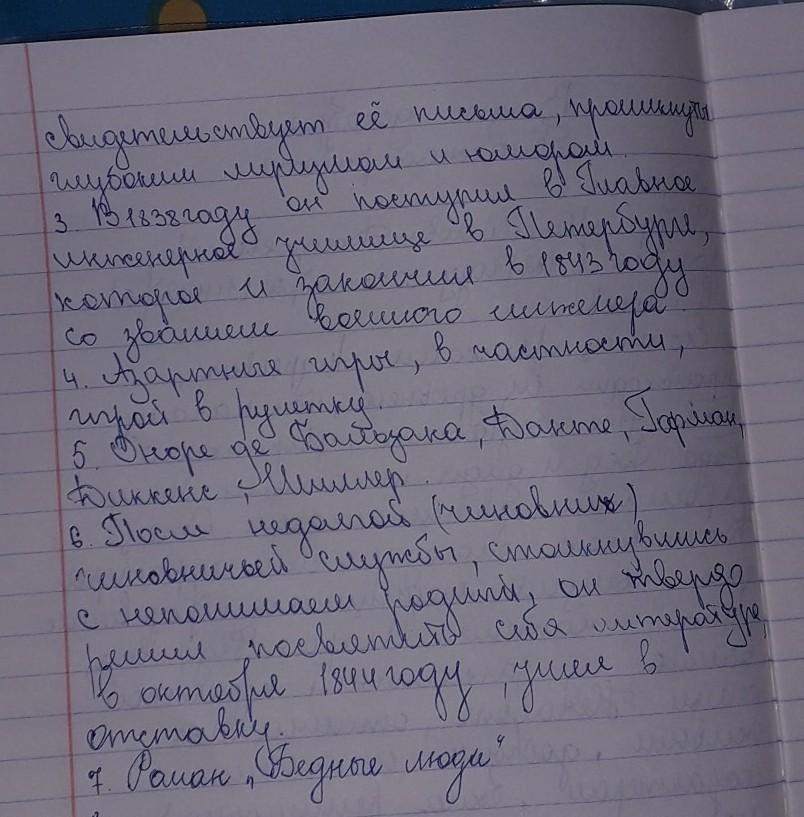 свидетельствует её письма, проникнуты
глубоким лиризмом и юмором.
3. В 1838 году он поступил в Главное
инженерное училище в Петербурге,
которое и закончил в 1843 году
со званием военного инженера
4. Азартные игры, в частности,
игрой в рулетку.
5. Оноре де Бальзака, Данте, Гофман,
Диккенс, Шиллер.
6. После недолгой (чиновник)
чиновничьей службы, столкнувшись
с непонимаем родини, он твердо
решил посвятить себя литературе,
в октября 1844 году, ушел в
отставку.
7. Роман „Бедные люди"